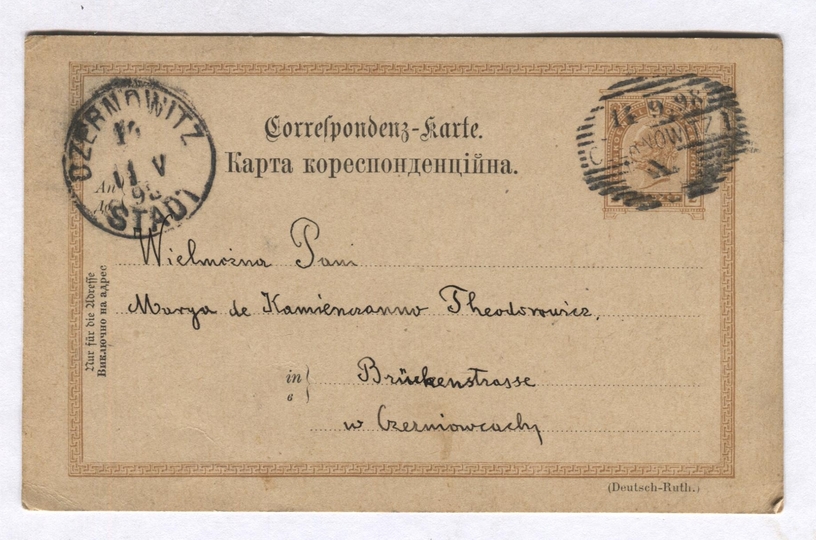 CZERNOWITZ
11 V
98
STADT
11 9.98
Correspondenz-Karte.
Карта кореспонденційна.
An
Wielmożna Pani
Marya de Theodorowicz,
in Brückenstrasse
в
w Czerniowcach
Nur für die Adresse
Виключно на адрес
(Deutsch-Ruth.)